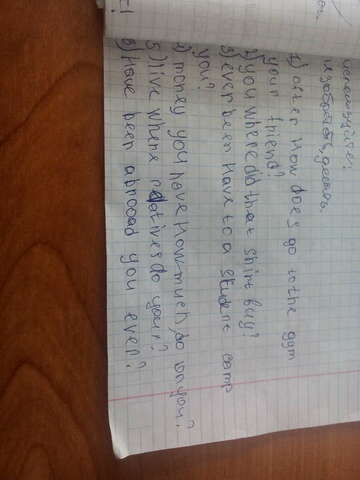 1) after How does go to the gym
your friend?
2) you where did that shirt buy?
3) ever been Have to a student camp
you?
4) money you have How much do on you?
5) live where relatives do your?
6) Have been abrooad you ever?